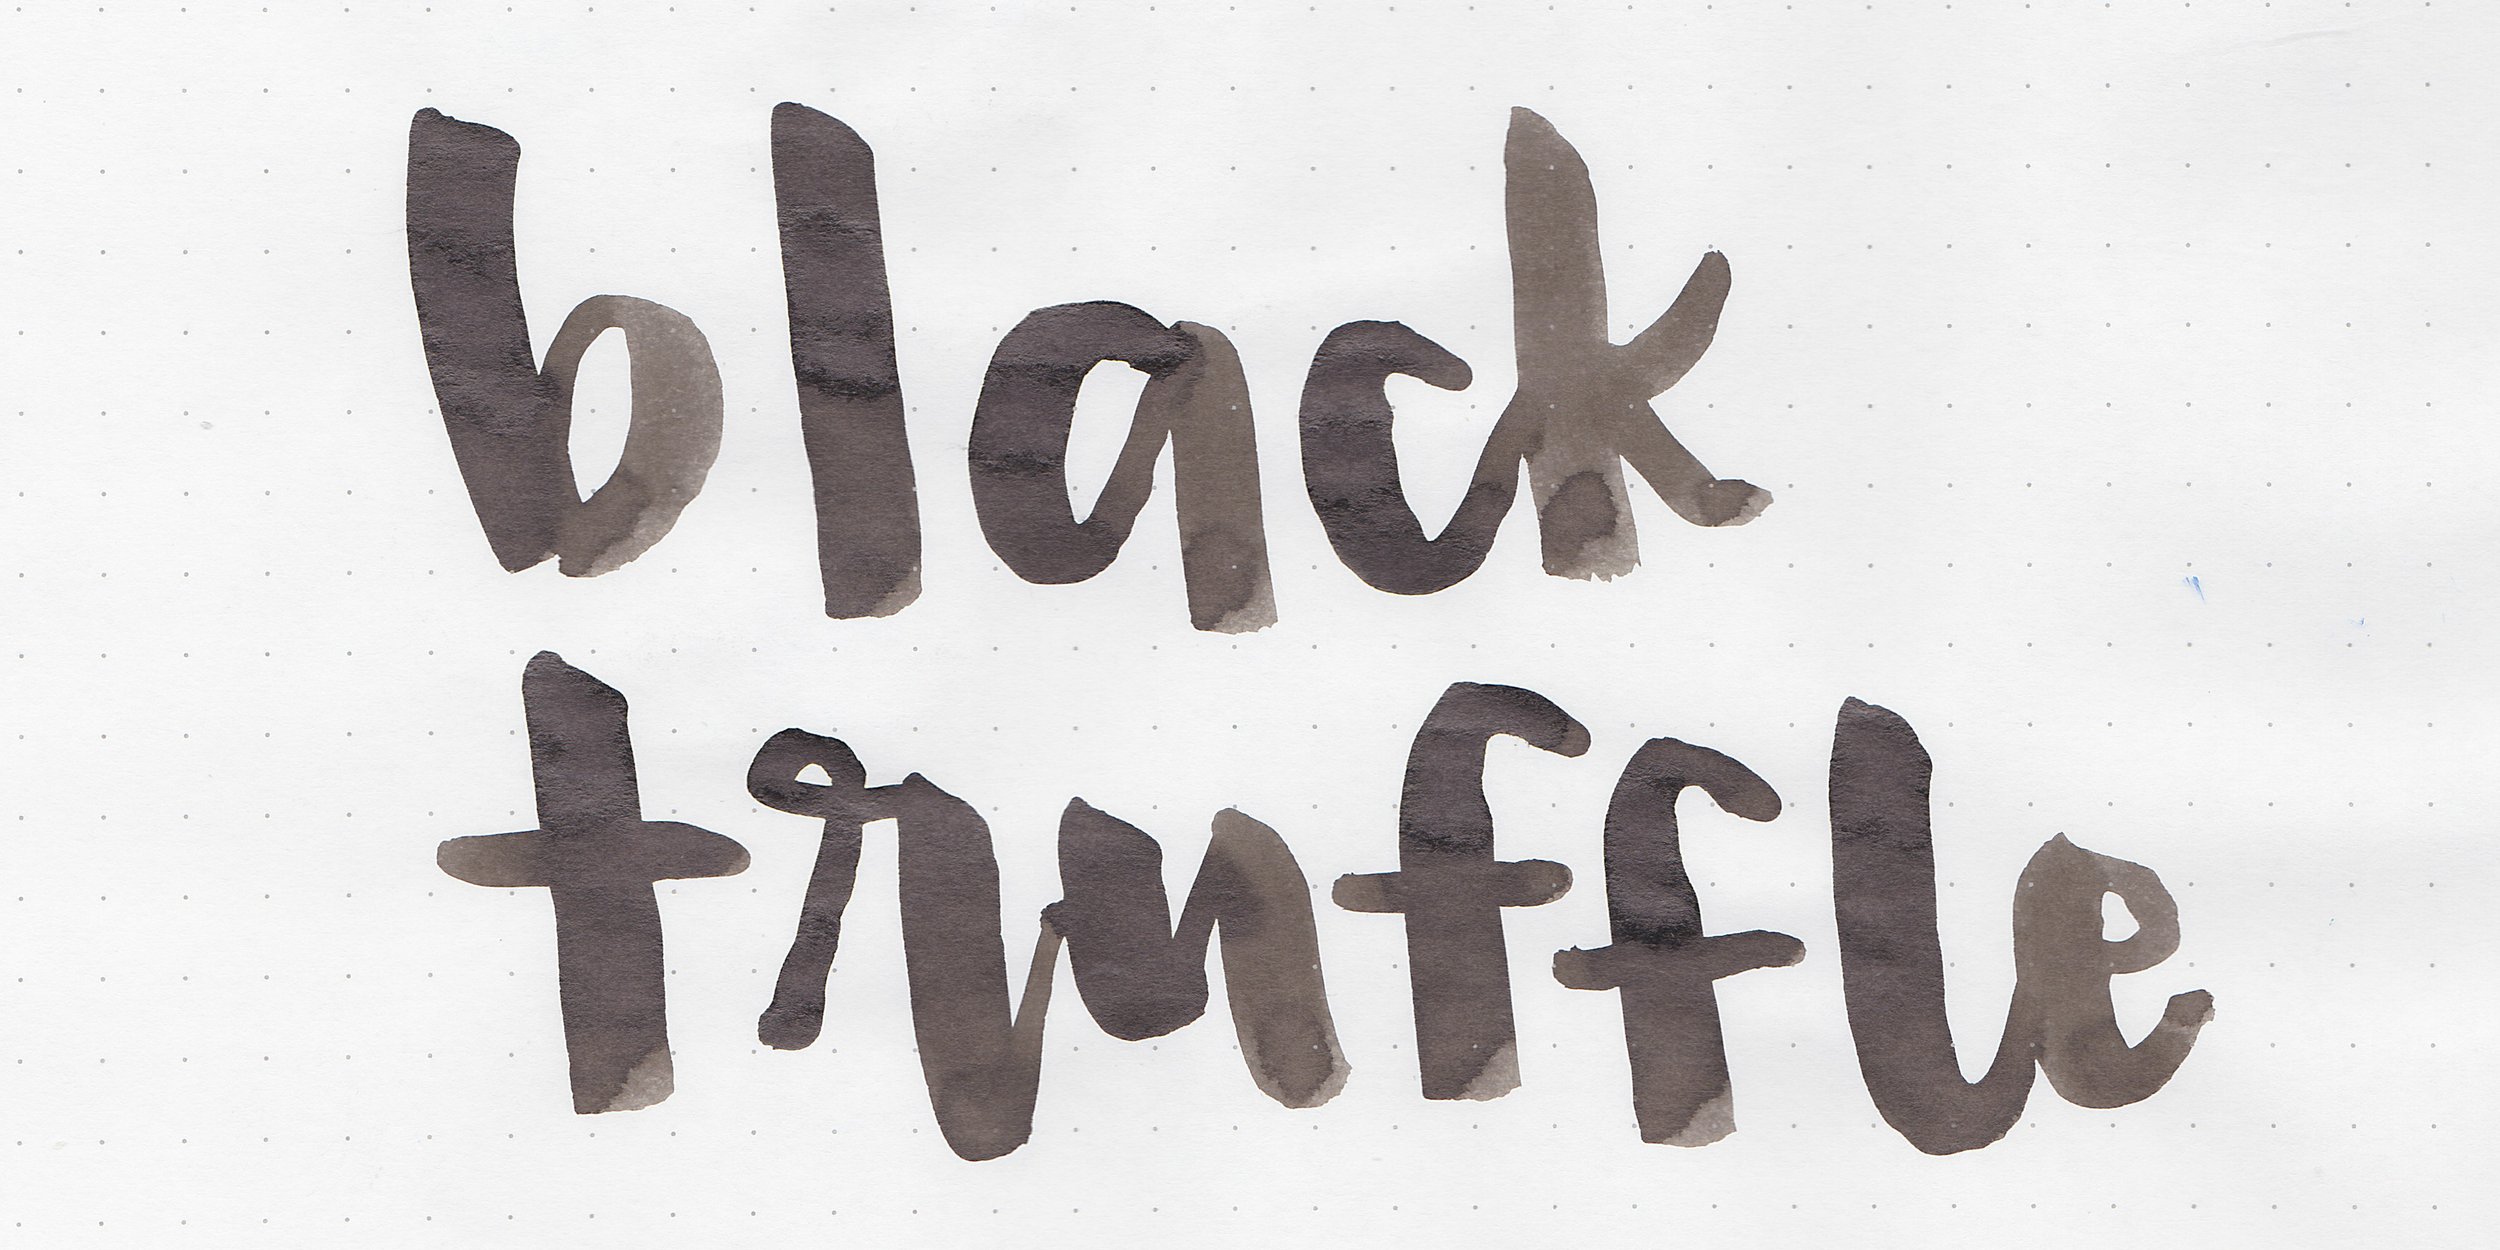 black
truffle